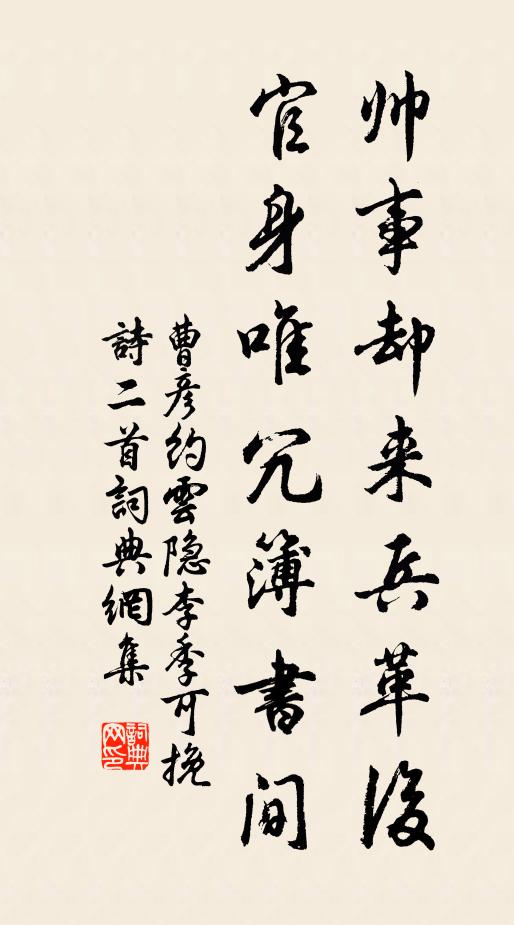 帅事却来兵革后
官身唯冗簿书间
曹彦约云隐李季可挽
诗二首词典网集
词典网印